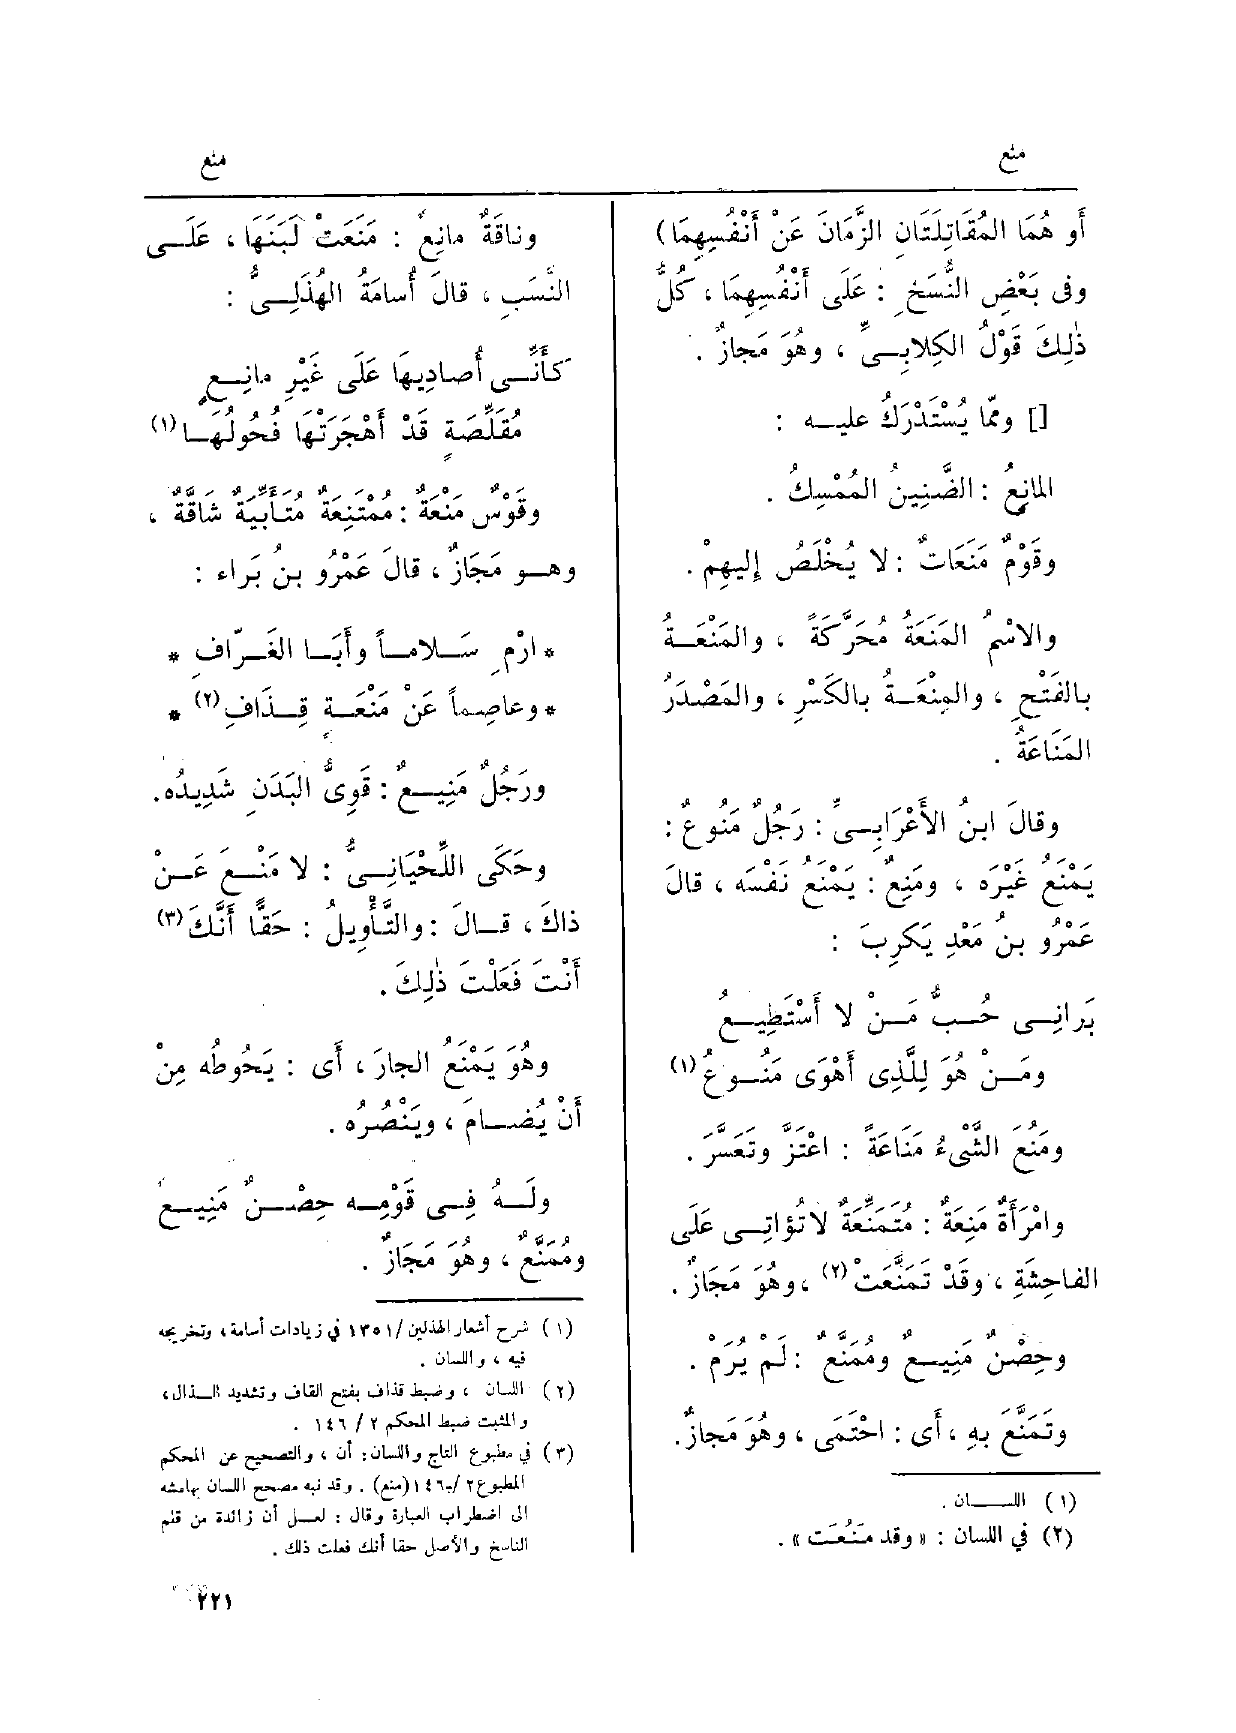 منع
أو هُمَا المُقَاتِلَتَانِ الزَّمَانَ عَنْ أَنْفُسِهِمَا)
وفى بَعْضِ النُّسَخِ : عَلَى أَنْفُسِهِمَا ، كُلُّ
ذٰلِكَ قَوْلُ الكِلابِـىِّ ، وهُوَ مَجازٌ .
[] وممّا يُسْتَدْرَكُ عليـه :
المانِعُ : الضَّنِينُ المُمْسِكُ .
وقَوْمٌ مَنَعَاتٌ : لا يُخْلَصُ إِليهِمْ .
والاسْمُ المَنَعَةُ مُحَرَّكَةً ، والمَنْعَـةُ
بالفَتْحِ ، والمِنْعَـةُ بالكَسْرِ ، والمَصْدَرُ
المَنَاعَةُ .
وقالَ ابنُ الأَعْرَابِـىِّ : رَجُلٌ مَنُوعٌ :
يَمْنَعُ غَيْرَه ، ومَنِعٌ : يَمْنَعُ نَفْسَه ، قالَ
عَمْرُو بنُ مَعْدِ يَكَرِبَ :
بَرانِـى حُـبُّ مَـنْ لا أَسْتَطِيـعُ
ومَـنْ هُوَ لِلَّذِى أَهْوَى مَنُـوعُ (١)
ومَنُعَ الشَّىءُ مَناعَةً : اعْتَزَّ وتَعَسَّرَ .
وامْرَأَةٌ مَنِعَةٌ : مُتَمَنِّعَةٌ لا تُؤَاتِـى عَلَى
الفاحِشَةِ ، وقَدْ تَمَنَّعَتْ (٢) ، وهُوَ مَجَازٌ .
وحِصْنٌ مَنِيـعٌ ومُمَنَّعٌ : لَمْ يُرَمْ .
وتَمَنَّعَ بِهِ ، أَى : احْتَمَى ، وهُوَ مَجازٌ.
(١) اللـسـان .
(٢) في اللسان : « وقد مَنُعَت » .
منع
وناقَةٌ مانِعٌ : مَنَعَتْ لَبَنَهَا ، عَلَـى
النَّسَبِ ، قالَ أُسامَةُ الهُذَلِـىُّ :
كأَنِّـى أُصادِيهَا عَلَى غَيْرِ مانِـعٍ
مُقَلِّصَةٍ قَدْ أَهْجَرَتْهَا فُحُولُهَـا (١)
وقَوْسٌ مَنْعَةٌ : مُمْتَنِعَةٌ مُتَأَبِّيَةٌ شاقَّةٌ ،
وهـو مَجَازٌ ، قالَ عَمْرُو بنُ بَراء :
* ارْمِ سَـلامـاً وأَبَـا الغَـرّافِ *
* وعاصِمـاً عَنْ مَنْعَـةٍ قِـذَافِ (٢) *
ورَجُلٌ مَنِيـعٌ : قَوِىُّ البَدَنِ شَدِيدُه.
وحَكَى اللِّحْيَانِـىُّ : لا مَنْـعَ عَـنْ
ذاكَ ، قـالَ : والتَّأْوِيلُ : حَقًّا أَنَّكَ (٣)
أَنْتَ فَعَلْتَ ذٰلِكَ .
وهُوَ يَمْنَعُ الجارَ ، أَى : يَحُوطُه مِنْ
أَنْ يُضـامَ ، ويَنْصُرُه .
ولَـهُ فِـى قَوْمِـه حِصْـنٌ مَنِيـعٌ
ومُمَنَّعٌ ، وهُوَ مَجَازٌ .
(١) شرح أشعار الهذليين /١٣٥١ في زيادات أسامة ، وتخريجه
فيه ، واللسان .
(٢) اللسان ، وضبط قذاف بفتح القاف وتشديد الـذال ،
والمثبت ضبط المحكم ٢/ ١٤٦ .
(٣) في مطبوع التاج واللسان : أن ، والتصحيح عن المحكم
المطبوع ٢/ ١٤٦ (منع) . وقد نبه مصحح اللسان بهامشه
الى اضطراب العبارة وقال : لعـل أن زائدة من قلم
الناسخ والأصل حقا أنك فعلت ذلك .
٢٢١